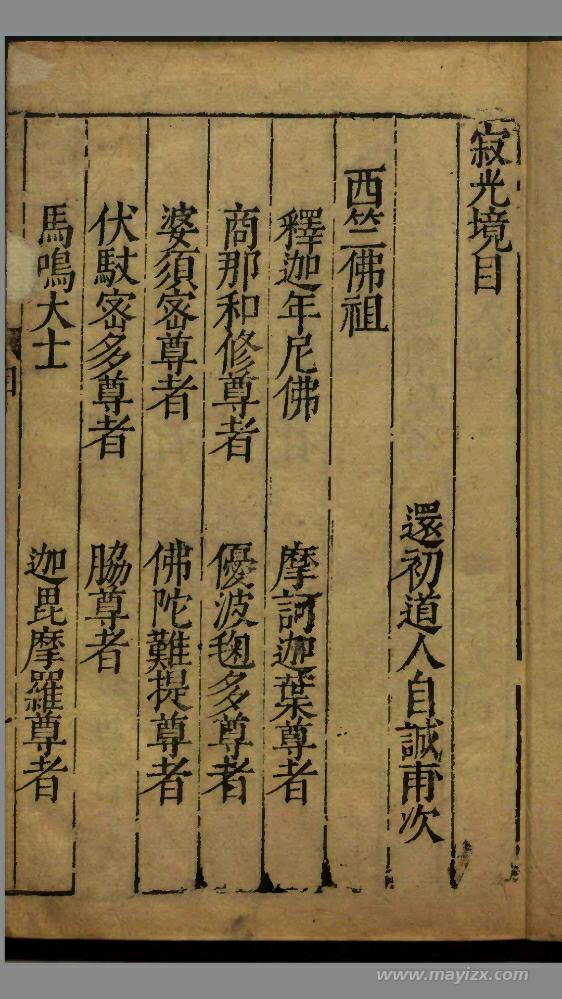 寂光境目
還初道人自誠甫次
西竺佛祖
釋迦牟尼佛 摩訶迦葉尊者
商那和修尊者 優波毱多尊者
婆須密尊者 佛陀難提尊者
伏馱密多尊者 脇尊者
馬鳴大士 迦毘摩羅尊者
www.mayizx.com